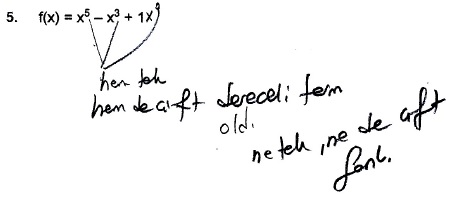 5. f(x) = x⁵ – x³ + 1x⁰
hem tek
hem de çift dereceli term
old.
ne tek, ne de çift
fonk.